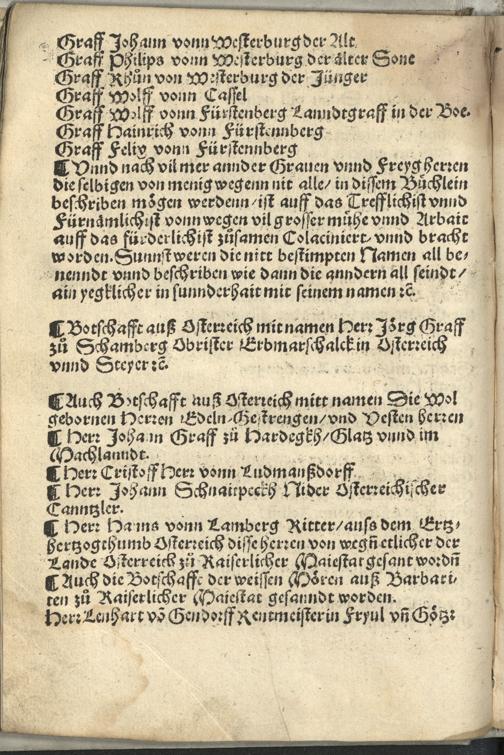 Graff Johann vonn Westerburg der Alt.
Graff Philips vonn Westerburg der älter Sone
Graff Rhůn von Westerburg der Jünger
Graff Wolff vonn Cassel
Graff Wolff vonn Fürstenberg Lanndtgraff in der Boe.
Graff Hainrich vonn Fürstennberg
Graff Felix vonn Fürstennberg
¶ Vnnd nach vil mer annder Grauen vnnd Freygherren
die selbigen von menig wegenn nit alle/ in dissem Büchlein
beschriben mögen werdenn/ist auff das Trefflichist vnnd
Fürnämlichist vonn wegen vil grosser mühe vnnd Arbait
auff das fürderlichist zůsamen Colaciniert/ vnnd bracht
worden. Sunnst weren die nitt bestimpten Namen all be-
nenndt vnnd beschriben wie dann die anndern all seindt/
ain yegklicher in sunnderhait mit seinem namen ꝛc̃.
¶ Botschafft auß Osterreich mit namen Herr Jörg Graff
zů Schamberg Obrister Erbmarschalck in Osterreich
vnnd Steyer ꝛc̃.
¶ Auch Botschafft auß Osterreich mitt namen Die Wol
gebornen Herren Edeln/Gestrengen/vnd Vesten herren
¶ Herr Johann Graff zů Hardegkh/Glatz vnnd im
Machlanndt.
¶ Herr Cristoff Herr vonn Ludmanßdorff
¶ Herr Johann Schnaitpeckh Nider Osterreichischer
Canntzler.
¶ Herr Hanns vonn Lamberg Ritter/auss dem Ertz-
hertzogthumb Osterreich disse herren von wegñ etlicher der
Lande Osterreich zů Kaiserlicher Maiestat gesant wordñ
¶ Auch die Botschafft der weissen Mören auß Barbari-
ten zů Kaiserlicher Maiestat gesanndt worden.
Herr Lenhart võ Gendorff Rentmeister in Fryul vñ Götz: